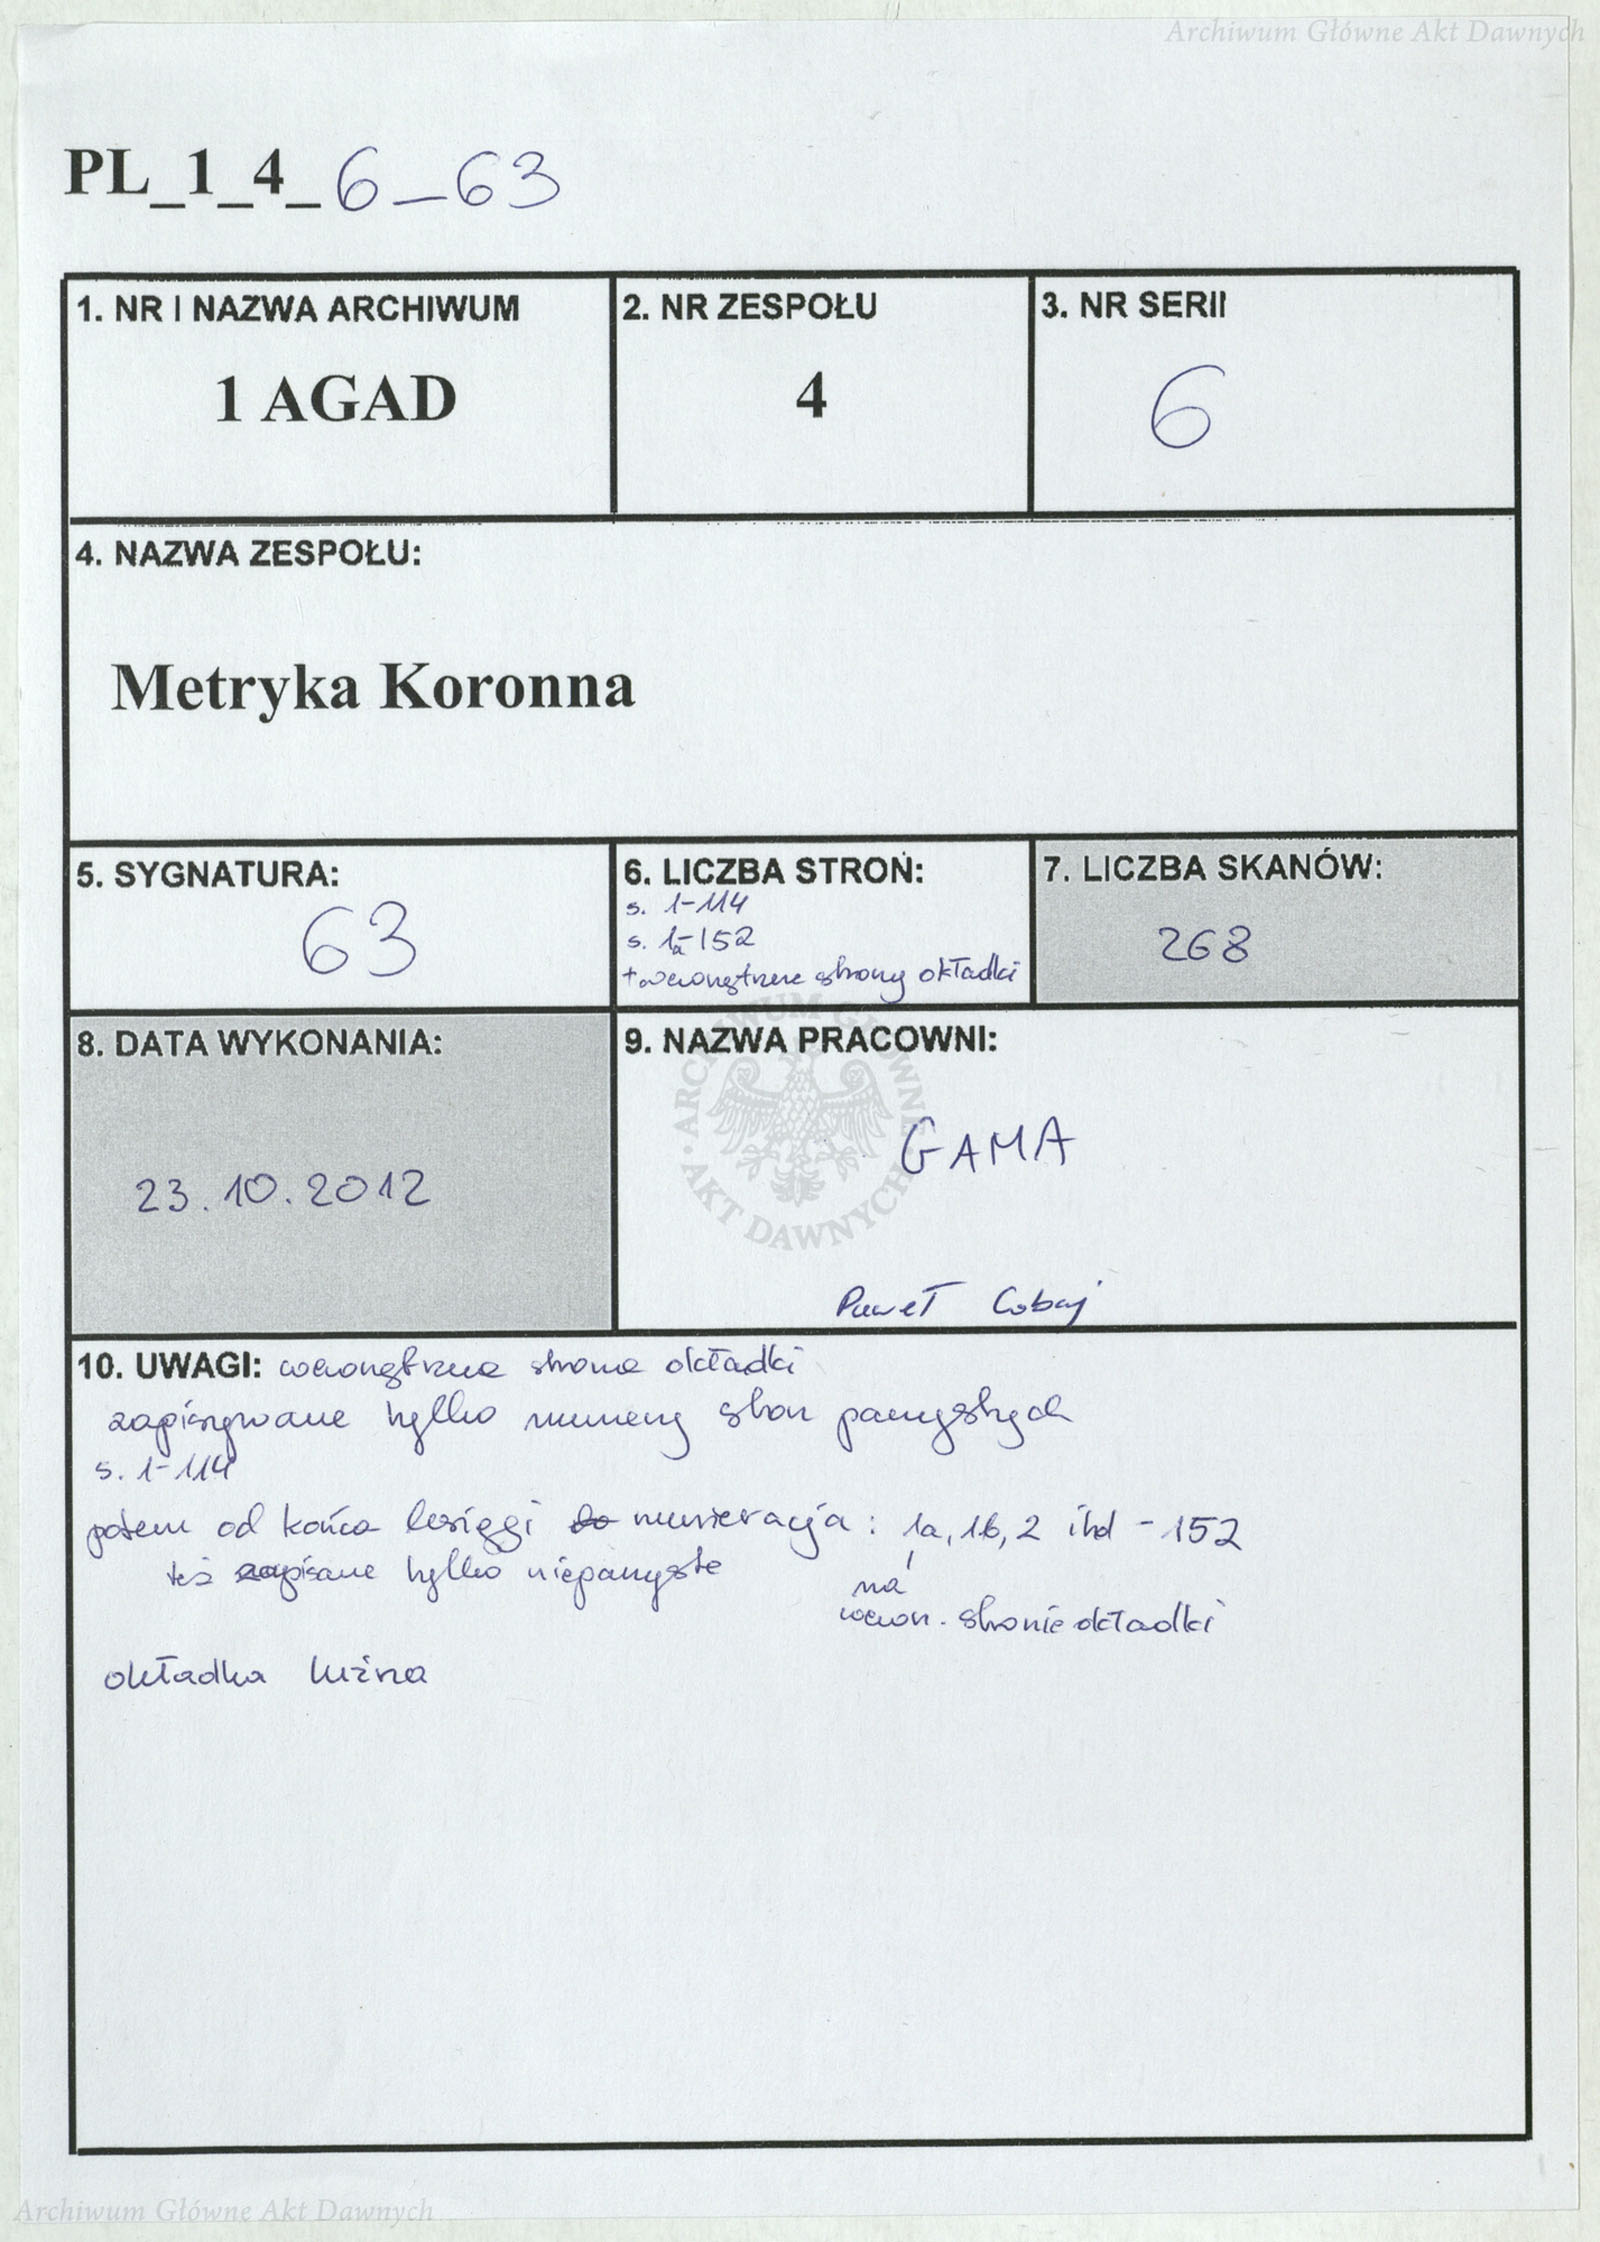 Archiwum Główne Akt Dawnych
PL_1_4_6_63
1. NR I NAZWA ARCHIWUM
1 AGAD
2. NR ZESPOŁU
4
3. NR SERII
6
4. NAZWA ZESPOŁU:
Metryka Koronna
5. SYGNATURA:
63
6. LICZBA STRON:
s. 1-114
s. 1a-152
+ wewnętrzne strony okładki
7. LICZBA SKANÓW:
268
8. DATA WYKONANIA:
23.10.2012
9. NAZWA PRACOWNI:
GAMA
Paweł
ARCHIWUM GŁÓWNE AKT DAWNYCH
10. UWAGI: wewnętrzna strona okładki
zapisywane tylko numery stron parzystych
s. 1-114
potem od końca księgi do numeracja: 1a, 1b, 2 itd - 152
też zapisane tylko nieparzyste
na
wewn. stronie okładki
okładka luźna
Archiwum Główne Akt Dawnych